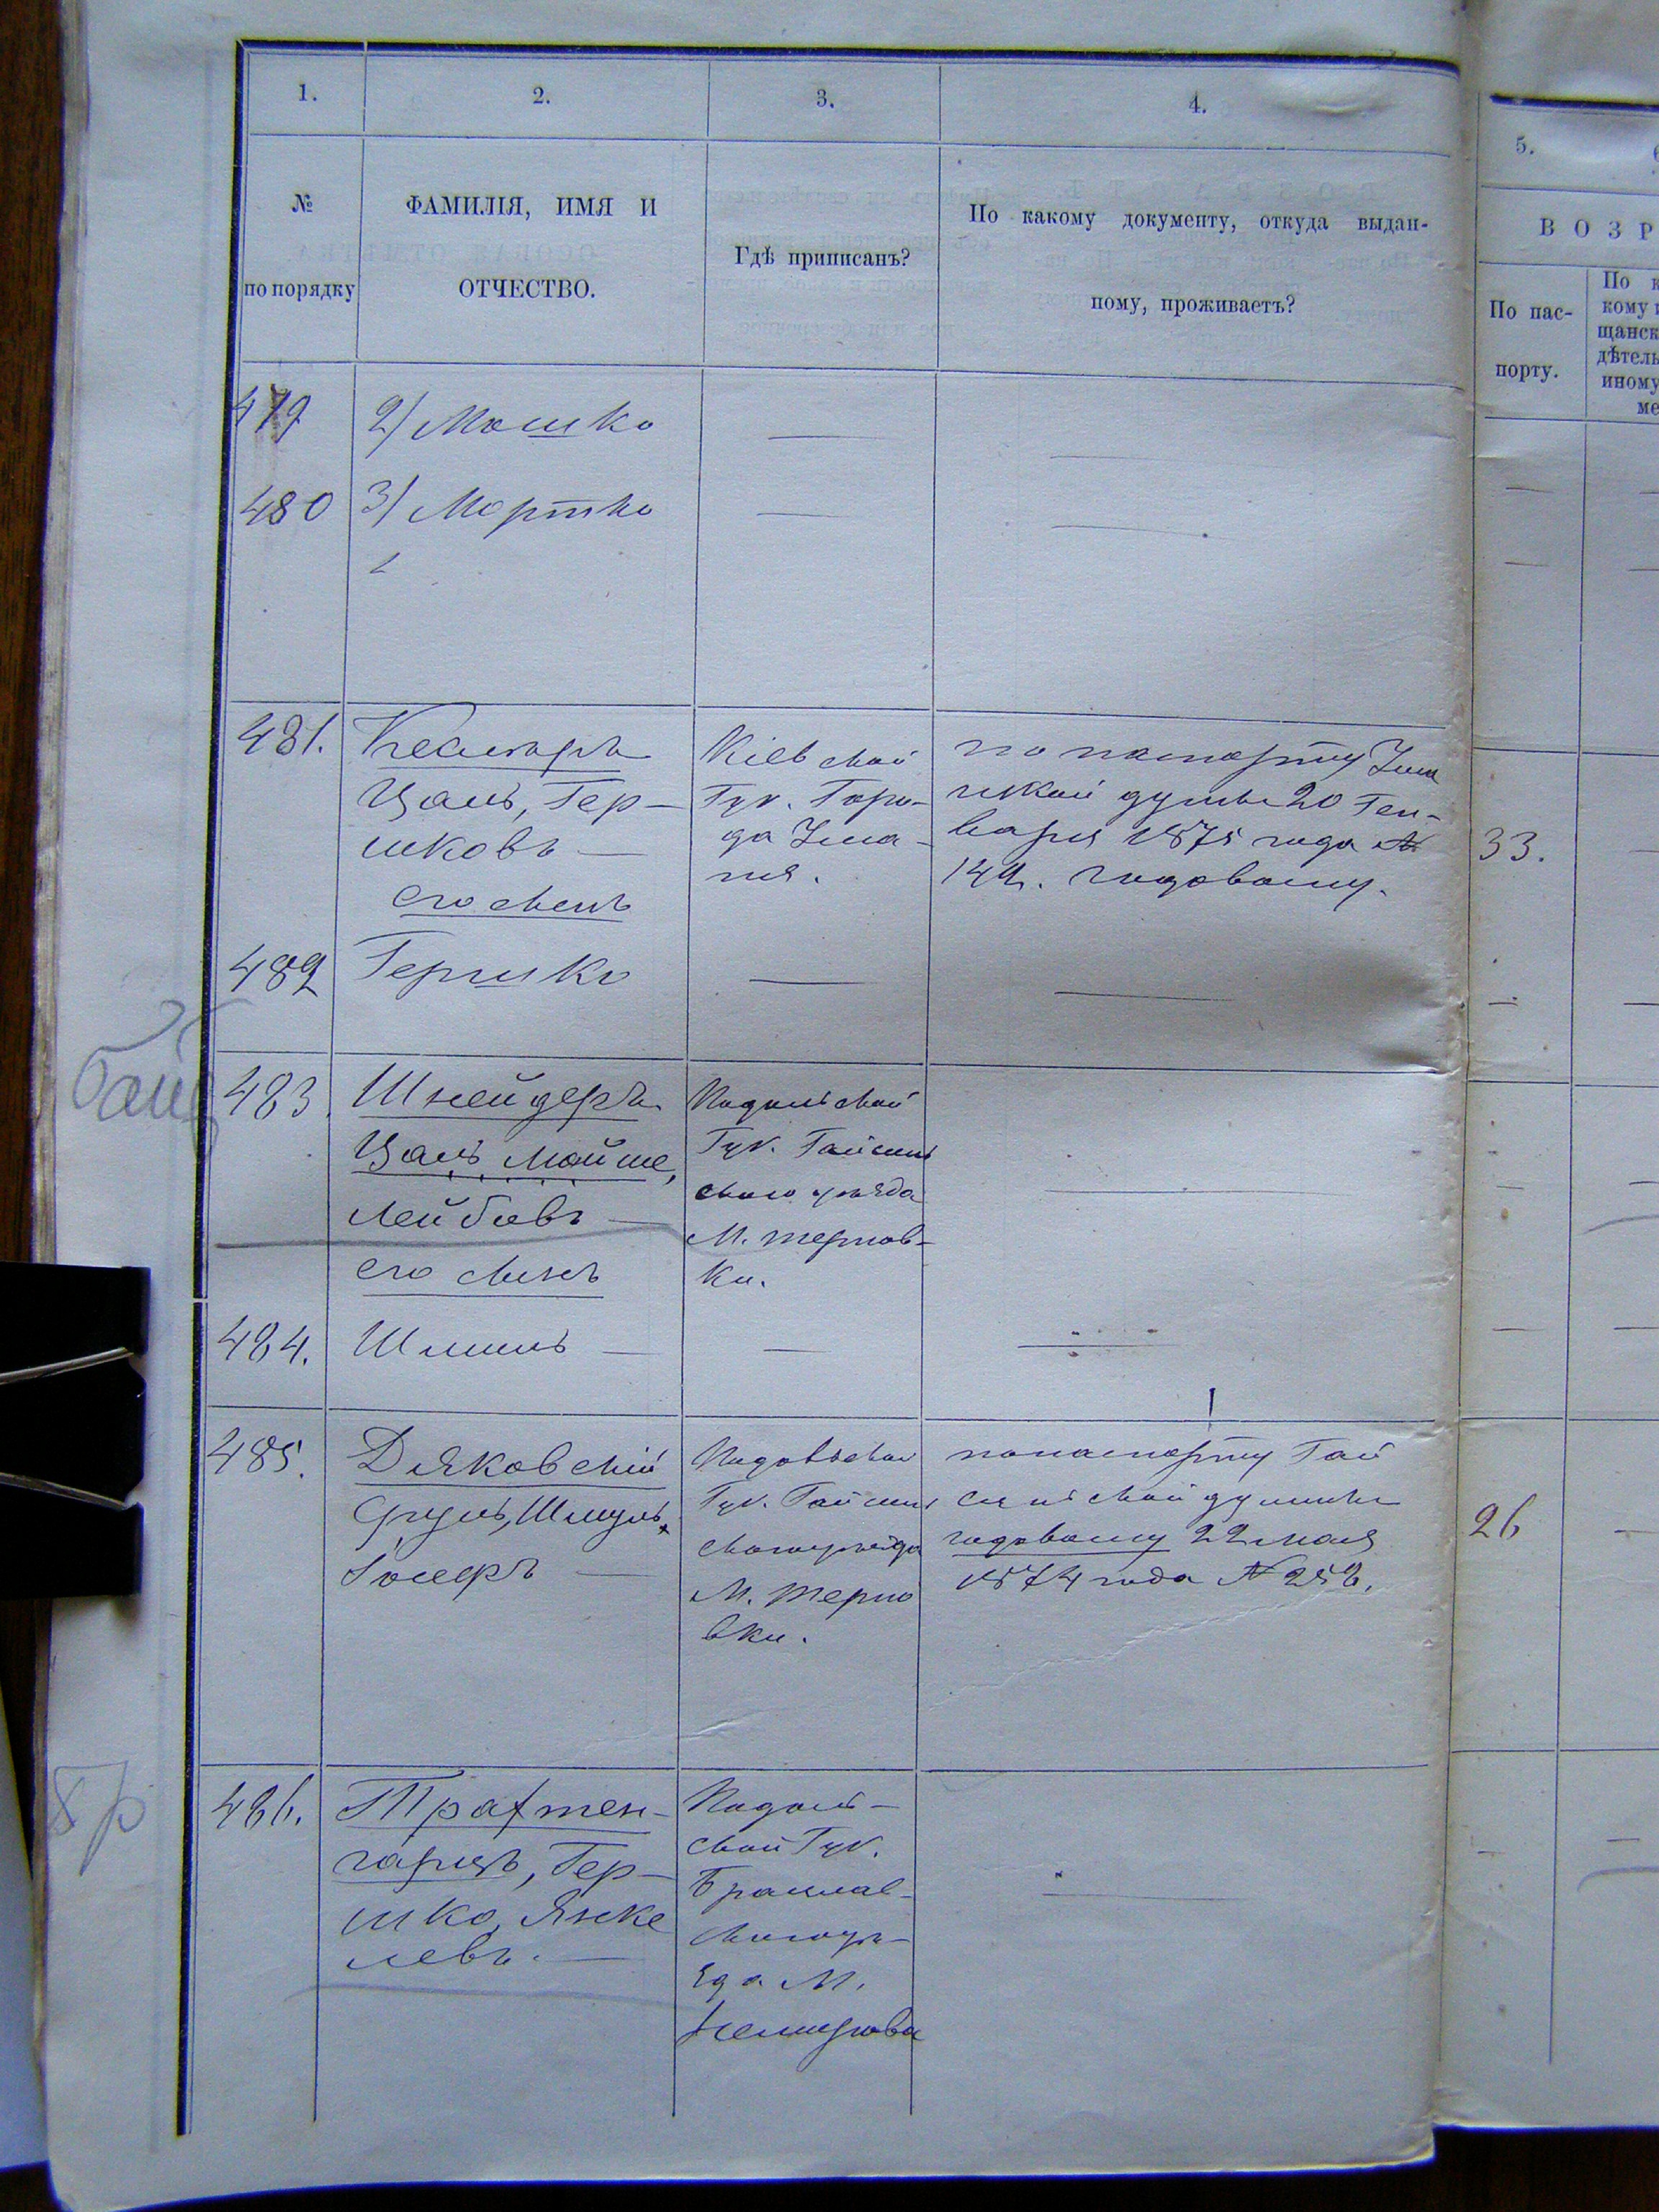 1.
2.
3.
4.
5.
№
по порядку
ФАМИЛІЯ, ИМЯ И
ОТЧЕСТВО.
Гдѣ приписанъ?
По какому документу, откуда выдан-
ному, проживаетъ?
ВОЗР
По пас-
порту.
По к
кому
щанск
дѣтель
иному
ме
479
2) Мошко
480
3) Мортко
481.
Цаль, Гер-
шковъ
его сынъ
Кіевской
Губ. Горо-
да Ума-
ня.
по паспорту Ума
нской думы 20 Ген-
варя 1875 года №
годовому.
33.
482
Гершко
483
Шнейдеръ
Цаль, Мойше,
Лейбовъ
его сынъ
Подольской
Губ. Гайсин
скаго уѣзда
М. Тернов-
ки.
484.
Шмиль
485.
Дяковскій
Сруль, Шмуль,
Іосифъ
Подольской
Губ. Гайсин
скаго уѣзда
М. Терно
вки.
по паспорту Гай
синской думы
годовому 22 мая
1874 года № 252.
26
486.
Трахтен-
гарцъ, Гер-
шко, Янке
левъ.
Подоль-
ской Губ.
Брацлав-
скаго уѣ-
зда М.
Немирова